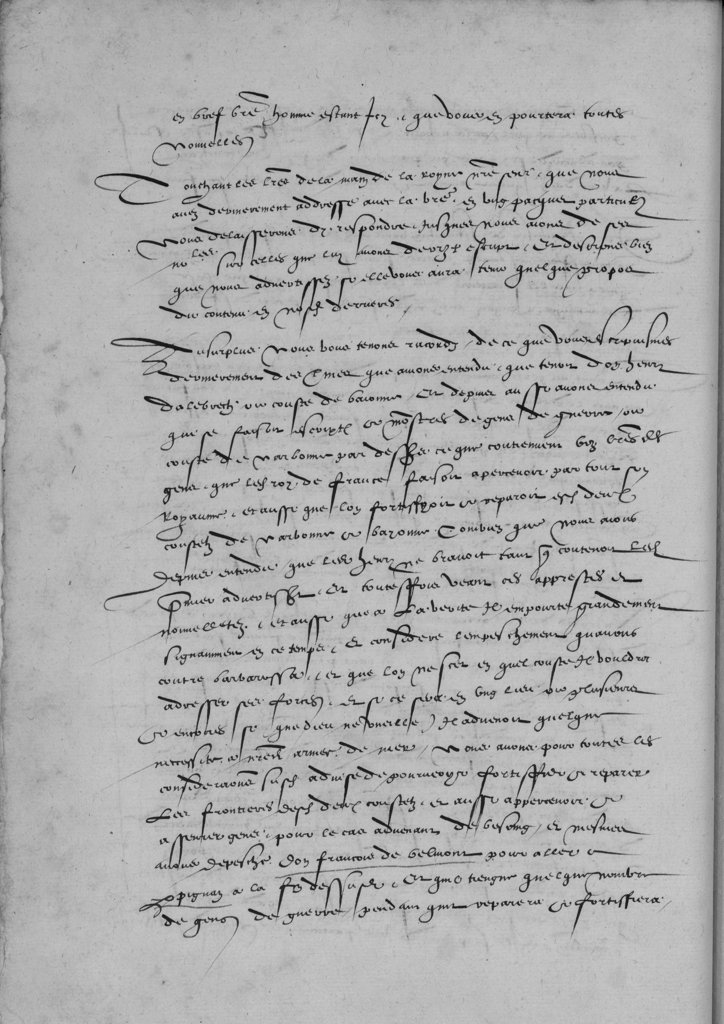 en bref vre homme estant icy, & que vous en pourtera toutes
nouvelles
Touchant les lres de la main de la royne nre seur, que nous
avez dernierement addresse avec la vre, en ung pacquet particulier
nous delaisserons dy respondre, jusques nous aions de ses
nolles sur celles que luy avons dernierement escript, Et desirerions bien
que nous advertissez se elle vous aura tenu quelque propoz
du contenu en nosd dernieres
Au surplus Nous vous tenons racordz, de ce que vous escripvismes
dernierement des que avions entendu, que tenoit don henry
dalebretz du couste de baionne, Et depuis aussi avons entendu
que se faisoit es monstres de gens de guerre, du
couste de Narbonne par dessus ce que contiennent voz lres
gens, que led roy de france faisoit apercevoir par tout son
Royaume, et aussi que lon fortiffioit & reparoit esd deux
coustez de Narbonne & bayonne Combien que nous avons
depuis entendu que led henry ne bravoit tant que contenoit led
premier advertissement, Et toutesffois veant ces apprestes et
nouvelletez, et aussi que a la verite Il emporte grandement
signamment en ce temps, & considere lempeschement quavons
contre barbarossa, et que lon ne scet en quel couste Il vouldra
adresser ses forces, Et si ce sera en ung lieu ou plusieurs
& encores se que dieu ne vueille) Il advenoit quelque
necessite a nred armee de mer, Nous avons pour toutes les
consideracions susd advise de pourveoyr fortiffier & reparer
Les frontieres desd deux coustez, et aussi appercevoir &
asseurer gens, pour le cas advenant de besoing, et mesmes
avons depesche don francois de belmont pour aller a
Parpignan a la fin dessusd, Et quil tiengne quelque nombre
de gens de guerre pendant quil reparera & fortiffiera,